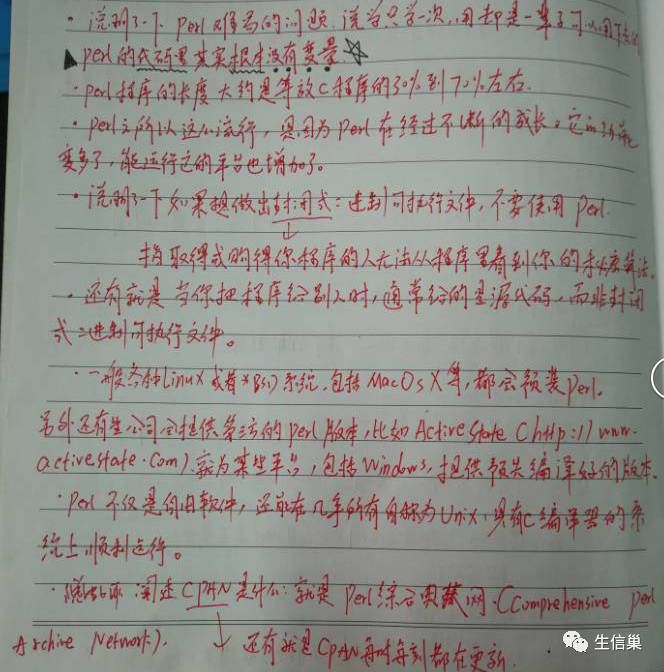 · 说明了一下 Perl 难写的问题. 说学只学一次, 用却是一辈子可以用下去的
▲ perl的代码里其实根本没有变量 ☆
· perl程序的长度大约是等效C程序的30%到70%左右.
· Perl之所以这么流行, 是因为 Perl 在经过不断的成长. 它的功能
变多了, 能运行它的平台也增加了。
· 说明了一下如果想做出封闭式二进制可执行文件, 不要使用 Perl.
↓
指取得或购得你程序的人无法从程序里看到你的 算法.
· 还有就是当你把程序给别人时, 通常给的是源代码, 而非封闭
式二进制可执行文件。
· 一般各种Linux 或者*BSD系统, 包括MacOs X等, 都会预装perl.
另外还有些公司会提供 的perl版本, 比如 ActiveState (http://www.
activestate.com). 就为某些平台, 包括Windows, 提供预先编译好的版本.
· Perl 不仅是自由软件, 还能在几乎所有自称为Unix, 具有C编译器的系
统上顺利运行。
· 阐述 CPAN是什么: 就是 Perl综合典藏网. (Comprehensive Perl
Archive Network). ↓ 还有就是CPAN每时每刻都在更新.
生信巢